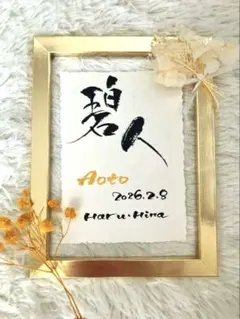 碧人
Aoto
2026.2.8
Haru・Hina